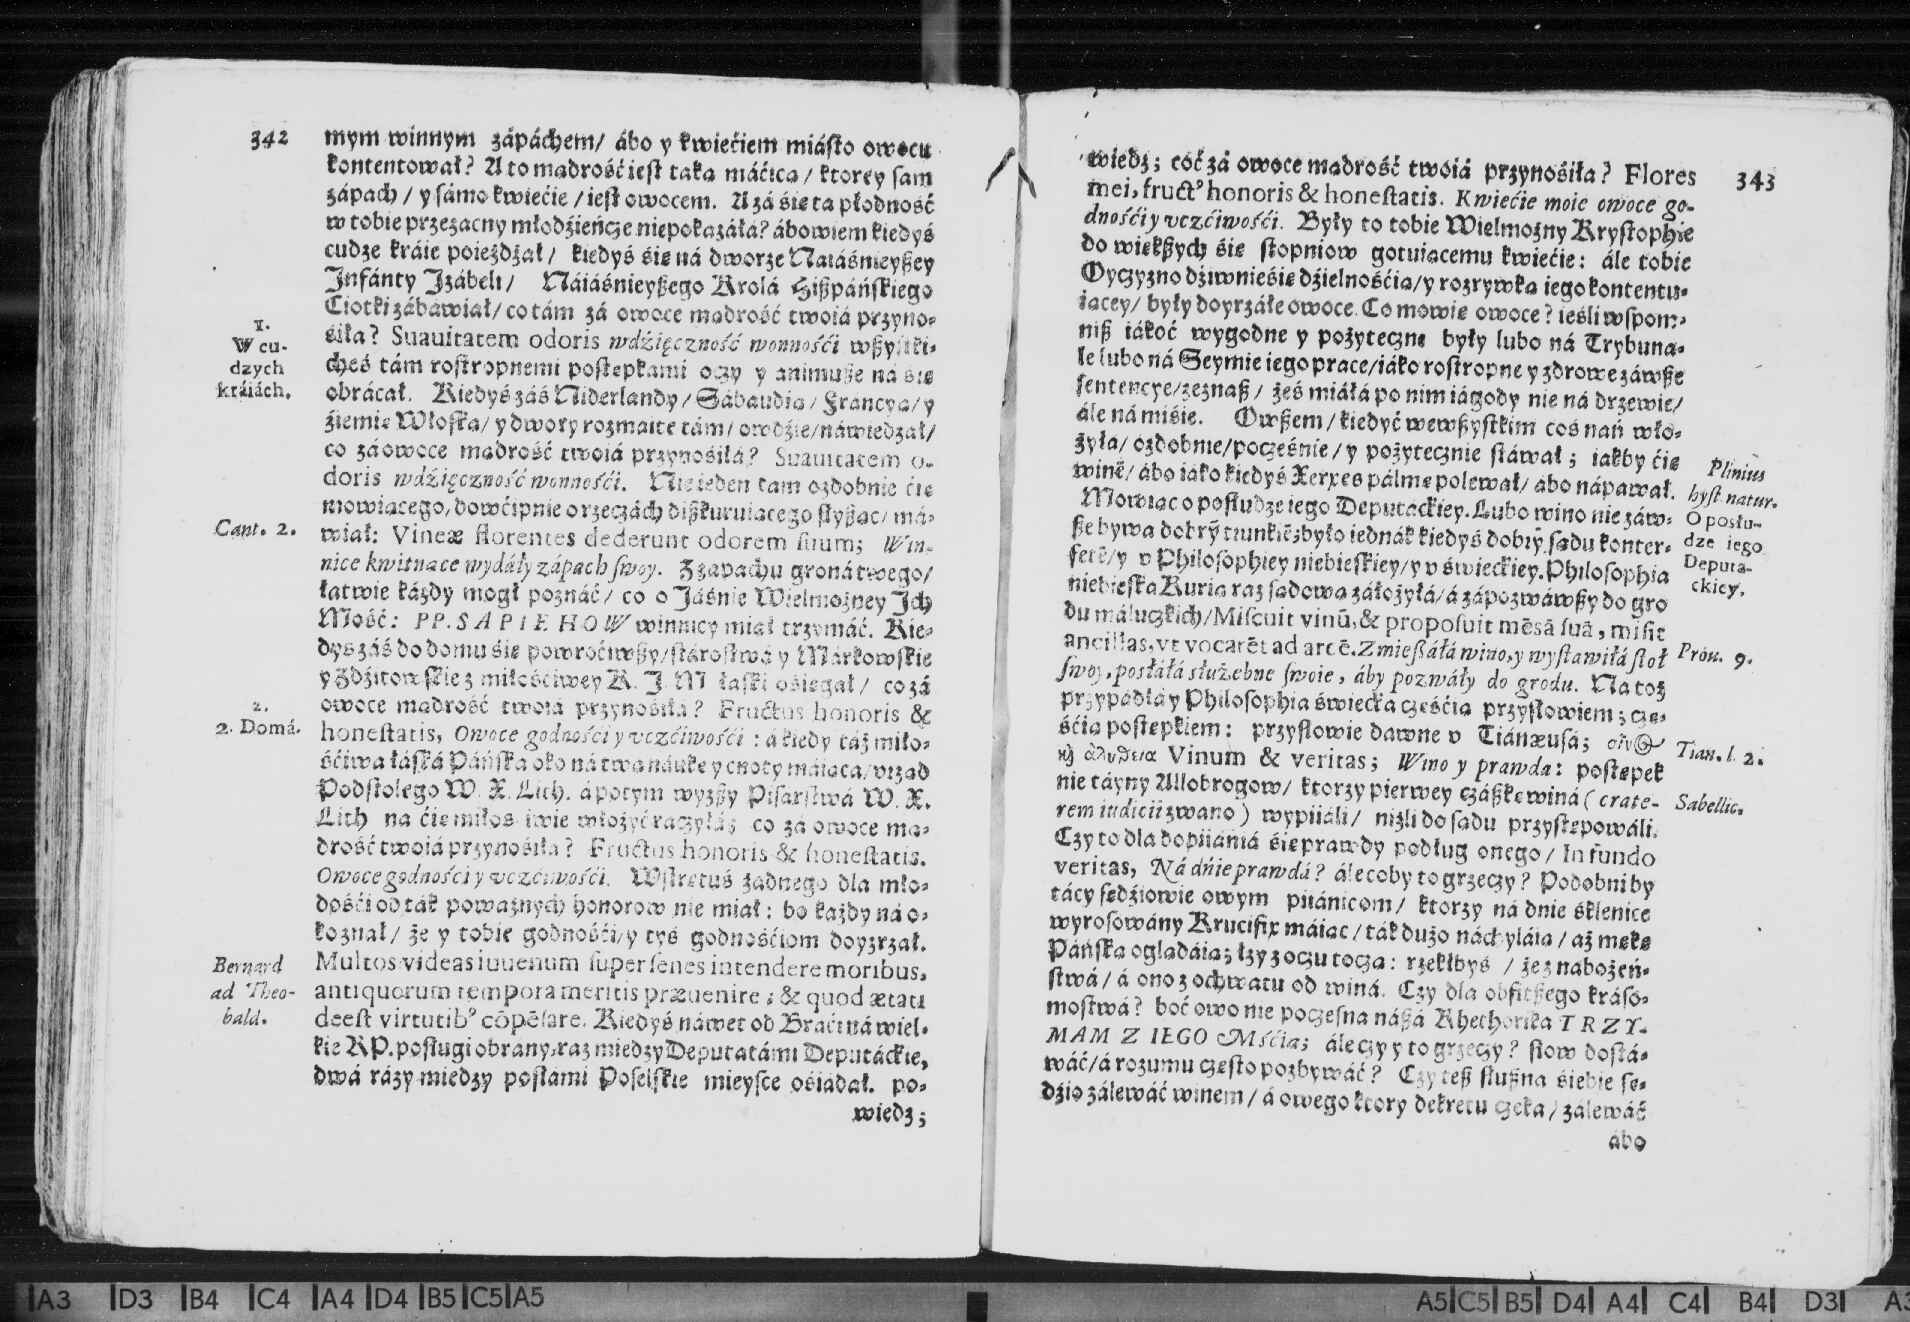 342
mym winnym zápáchem/ ábo y kwiećiem miásto owocu
kontentował? A to mądrość iest taka máćica/ ktorey sam
zápach/ y sámo kwiećie/ iest owocem. A zá się ta płodność
w tobie przezacny młodźieńcze niepokazáłá? ábowiem kiedyś
cudze kráie poieżdżał/ kiedyś się ná dworze Naiáśnieyßey
Infánty Izábeli/ Náiáśnieyßego Krolá Hißpáńskiego
Ciotki zábáwiał/ co tám zá owoce mądrość twoiá przyno-
siła? Suauitatem odoris wdźięczność wonnośći wßystki-
cheś tám rostropnemi postępkámi oczy y animuße ná się
obrácał. Kiedyś záś Niderlandy/ Sábaudią/ Francyą/ y
źiemię Włoską/ y dwory rozmáite tám/ owdźie/ náwiedzał/
co zá owoce mądrość twoiá przynosiłá? Suauitatem o-
doris wdźięczność wonnośći. Nie ieden tam ozdobnie ćię
mowiącego, dowćipnie o rzeczách dißkuruiącego słyßąc/ má-
wiał: Vineæ florentes dederunt odorem suum; Win-
nice kwitnące wydáły zápách swoy. Z zapachu groná twego/
łatwie káżdy mogł poznáć/ co o Jáśnie Wielmożney Ich
Mość: PP. SAPIEHOW winnicy miał trzymáć. Kie-
dyś záś do domu się powroćiwßy/ stárostwá y Márkowskie
y Zdźitowskie z miłośćiwey K. J. M łaski osięgał/ co zá
owoce mądrość twoiá przynosiłá? Fructus honoris &
honestatis, Owoce godnośći y vczćiwośći: á kiedy táż miło-
śćiwa łáská Páńska oko ná twą náukę y cnoty máiąca/ vrząd
Podstolego W. X. Lith. á potym wyżßy Pisarstwá W. X.
Lith na ćię miłośćiwie włożyć raczyłá; co zá owoce mą-
drość twoiá przynosiła? Fructus honoris & honestatis.
Owoce godnośći y vczćiwośći. Wstrętuś żadnego dla mło-
dośći od ták poważnych honorow nie miał: bo każdy ná o-
ko znał/ że y tobie godnośći/ y tyś godnośćiom doyzrzał.
Multos videas iuuenum super senes intendere moribus,
antiquorum tempora meritis præuenire; & quod ætati
deest virtutib⁹ cōpēsare. Kiedyś náwet od Braći ná wiel-
kie RP. posługi obrany, raz między Deputatámi Deputáckie,
dwá rázy między posłami Poselskie mieysce ośiadał. po-
wiedz;
1.
W cu-
dzych
kráiách.
Cant. 2.
2.
2. Domá.
Bernard
ad Theo-
bald.
343
wiedz; cóć zá owoce mądrość twoiá przynosiła? Flores
mei, fruct⁹ honoris & honestatis. Kwiećie moie owoce go-
dnośći y vczćiwośći. Były to tobie Wielmożny Krystophie
do większych się stopniow gotuiącemu kwiećie: ále tobie
Oyczyzno dźiwnie się dźielnośćią/ y rozrywką iego kontentu-
iącey/ były doyrzáłe owoce. Co mowię owoce? ieśli wspom-
niß iákoć wygodne y pożyteczne były lubo ná Trybuna-
le lubo ná Seymie iego prace/ iáko rostropne y zdrowe záwße
sentencye/ zeznaß/ żeś miáłá po nim iágody nie ná drzewie/
ále ná miśie. Owßem/ kiedyć we wßystkim coś nań wło-
żyła/ ozdobnie/ pocześnie/ y pożytecznie stáwał; iakby ćię
winē/ ábo iáko kiedyś Xerxes pálmę polewał/ abo nápawał.
Mowiąc o posłudze iego Deputáckiey. Lubo wino nie záw-
ße bywa dobrȳ trunkiē; było iednák kiedyś dobrȳ sądu konter-
fetē/ y v Philosophiey niebieskiey/ y v świeckiey. Philosophia
niebieska Kurią raz sądową záłożyłá/ á zápozwáwßy do gro
du máluczkich/ Miscuit vinū, & proposuit mēsā suā, misit
ancillas, vt vocarēt ad artē. Zmießáłá wino, y wystawiłá stoł
swoy, posłáłá służebne swoie, áby pozwáły do grodu. Na toż
przypádłá y Philosophia świecka częśćią przysłowiem; czę-
śćią postępkiem: przysłowie dawne v Tiánæusá; οἶνος
καὶ ἀλήθεια Vinum & veritas; Wino y prawda: postępek
nie táyny Allobrogow/ ktorzy pierwey czáßkę winá (crate-
rem iudicii zwano) wypiiáli/ niżli do sądu przystępowáli.
Czy to dla dopiiániá się prawdy podług onego/ In fundo
veritas, Ná dńie prawdá? ále coby to grzeczy? Podobniby
tácy sędźiowie owym piiánicom/ ktorzy ná dnie sklenice
wyrosowány Krucifix máiąc/ ták dużo náchyláią/ aż mękę
Páńską oglądáią; łzy z oczu toczą: rzekłbyś/ że z nabożeń-
stwá/ á ono z ochwatu od winá. Czy dla obfitßego kráso-
mostwá? boć owo nie poczesna náßá Rhethorika TRZY-
MAM Z IEGO Mśćią; ále czy y to grzeczy? słow dostá-
wáć/ á rozumu często pozbywáć? Czy teß słußna siebie sę-
dźio zálewáć winem/ á owego ktory dekretu czeka/ zálewáć
ábo
Plinius
hyst. natur.
O posłu-
dze iego
Deputa-
ckiey.
Prou. 9.
Tian. l. 2.
Sabellic.
A3 D3 B4 C4 A4 D4 B5 C5 A5
A5 C5 B5 D4 A4 C4 B4 D3 A3